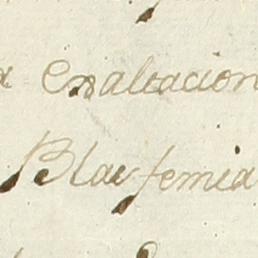 exaltacion
Blasfemia